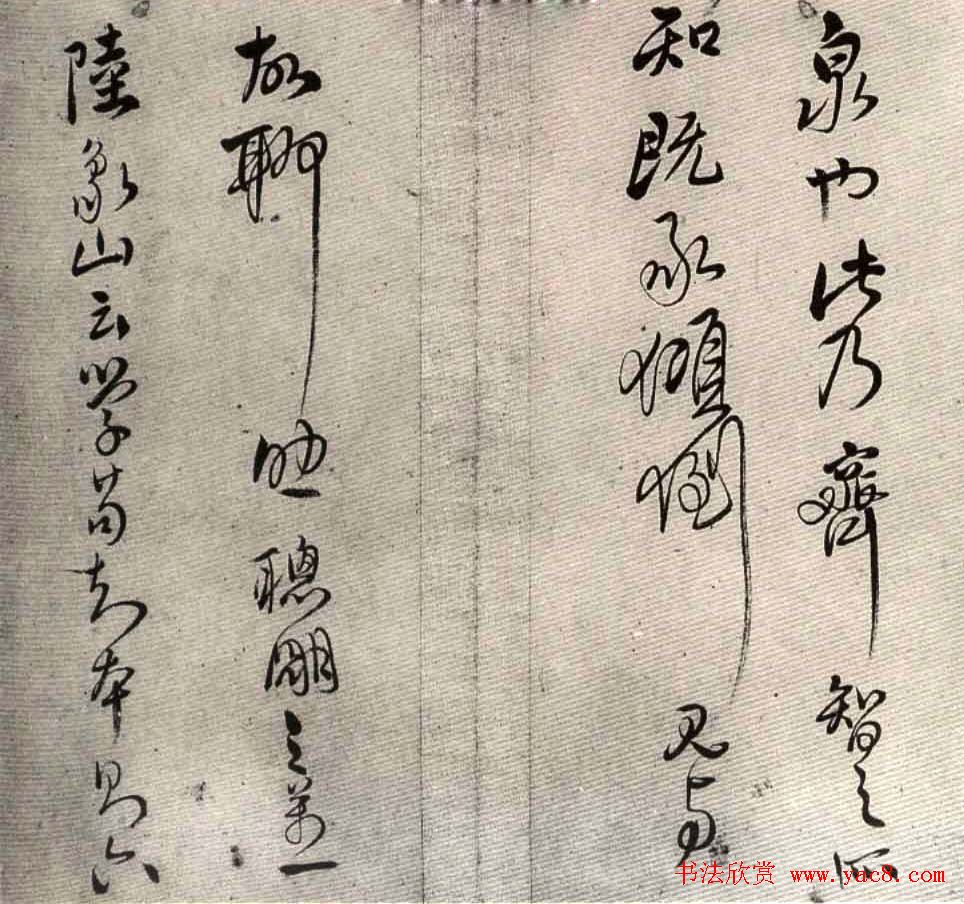 泉也此乃齊智之所
知既承傾倒見与
故聊助聰明之萬一
陸象山云學苟知本則六
书法欣赏 www.yac8.com